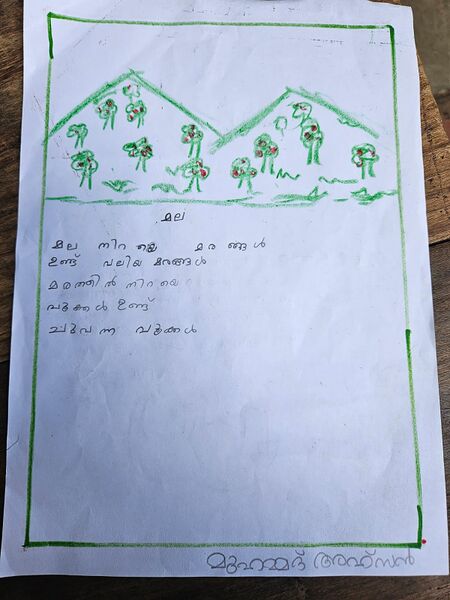 മല
മല നിറയെ മരങ്ങൾ
ഉണ്ട് വലിയ മരങ്ങൾ
മരത്തിൻ നിറയെ
പൂക്കൾ ഉണ്ട്
ചുവന്ന പൂക്കൾ
മുഹമ്മദ് അഹ്സൻ